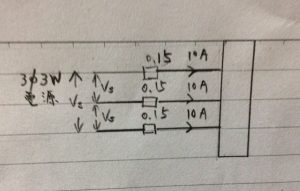 0.15 10A
3φ3W
電源
Vs Vs
0.15 10A
Vs
0.15 10A